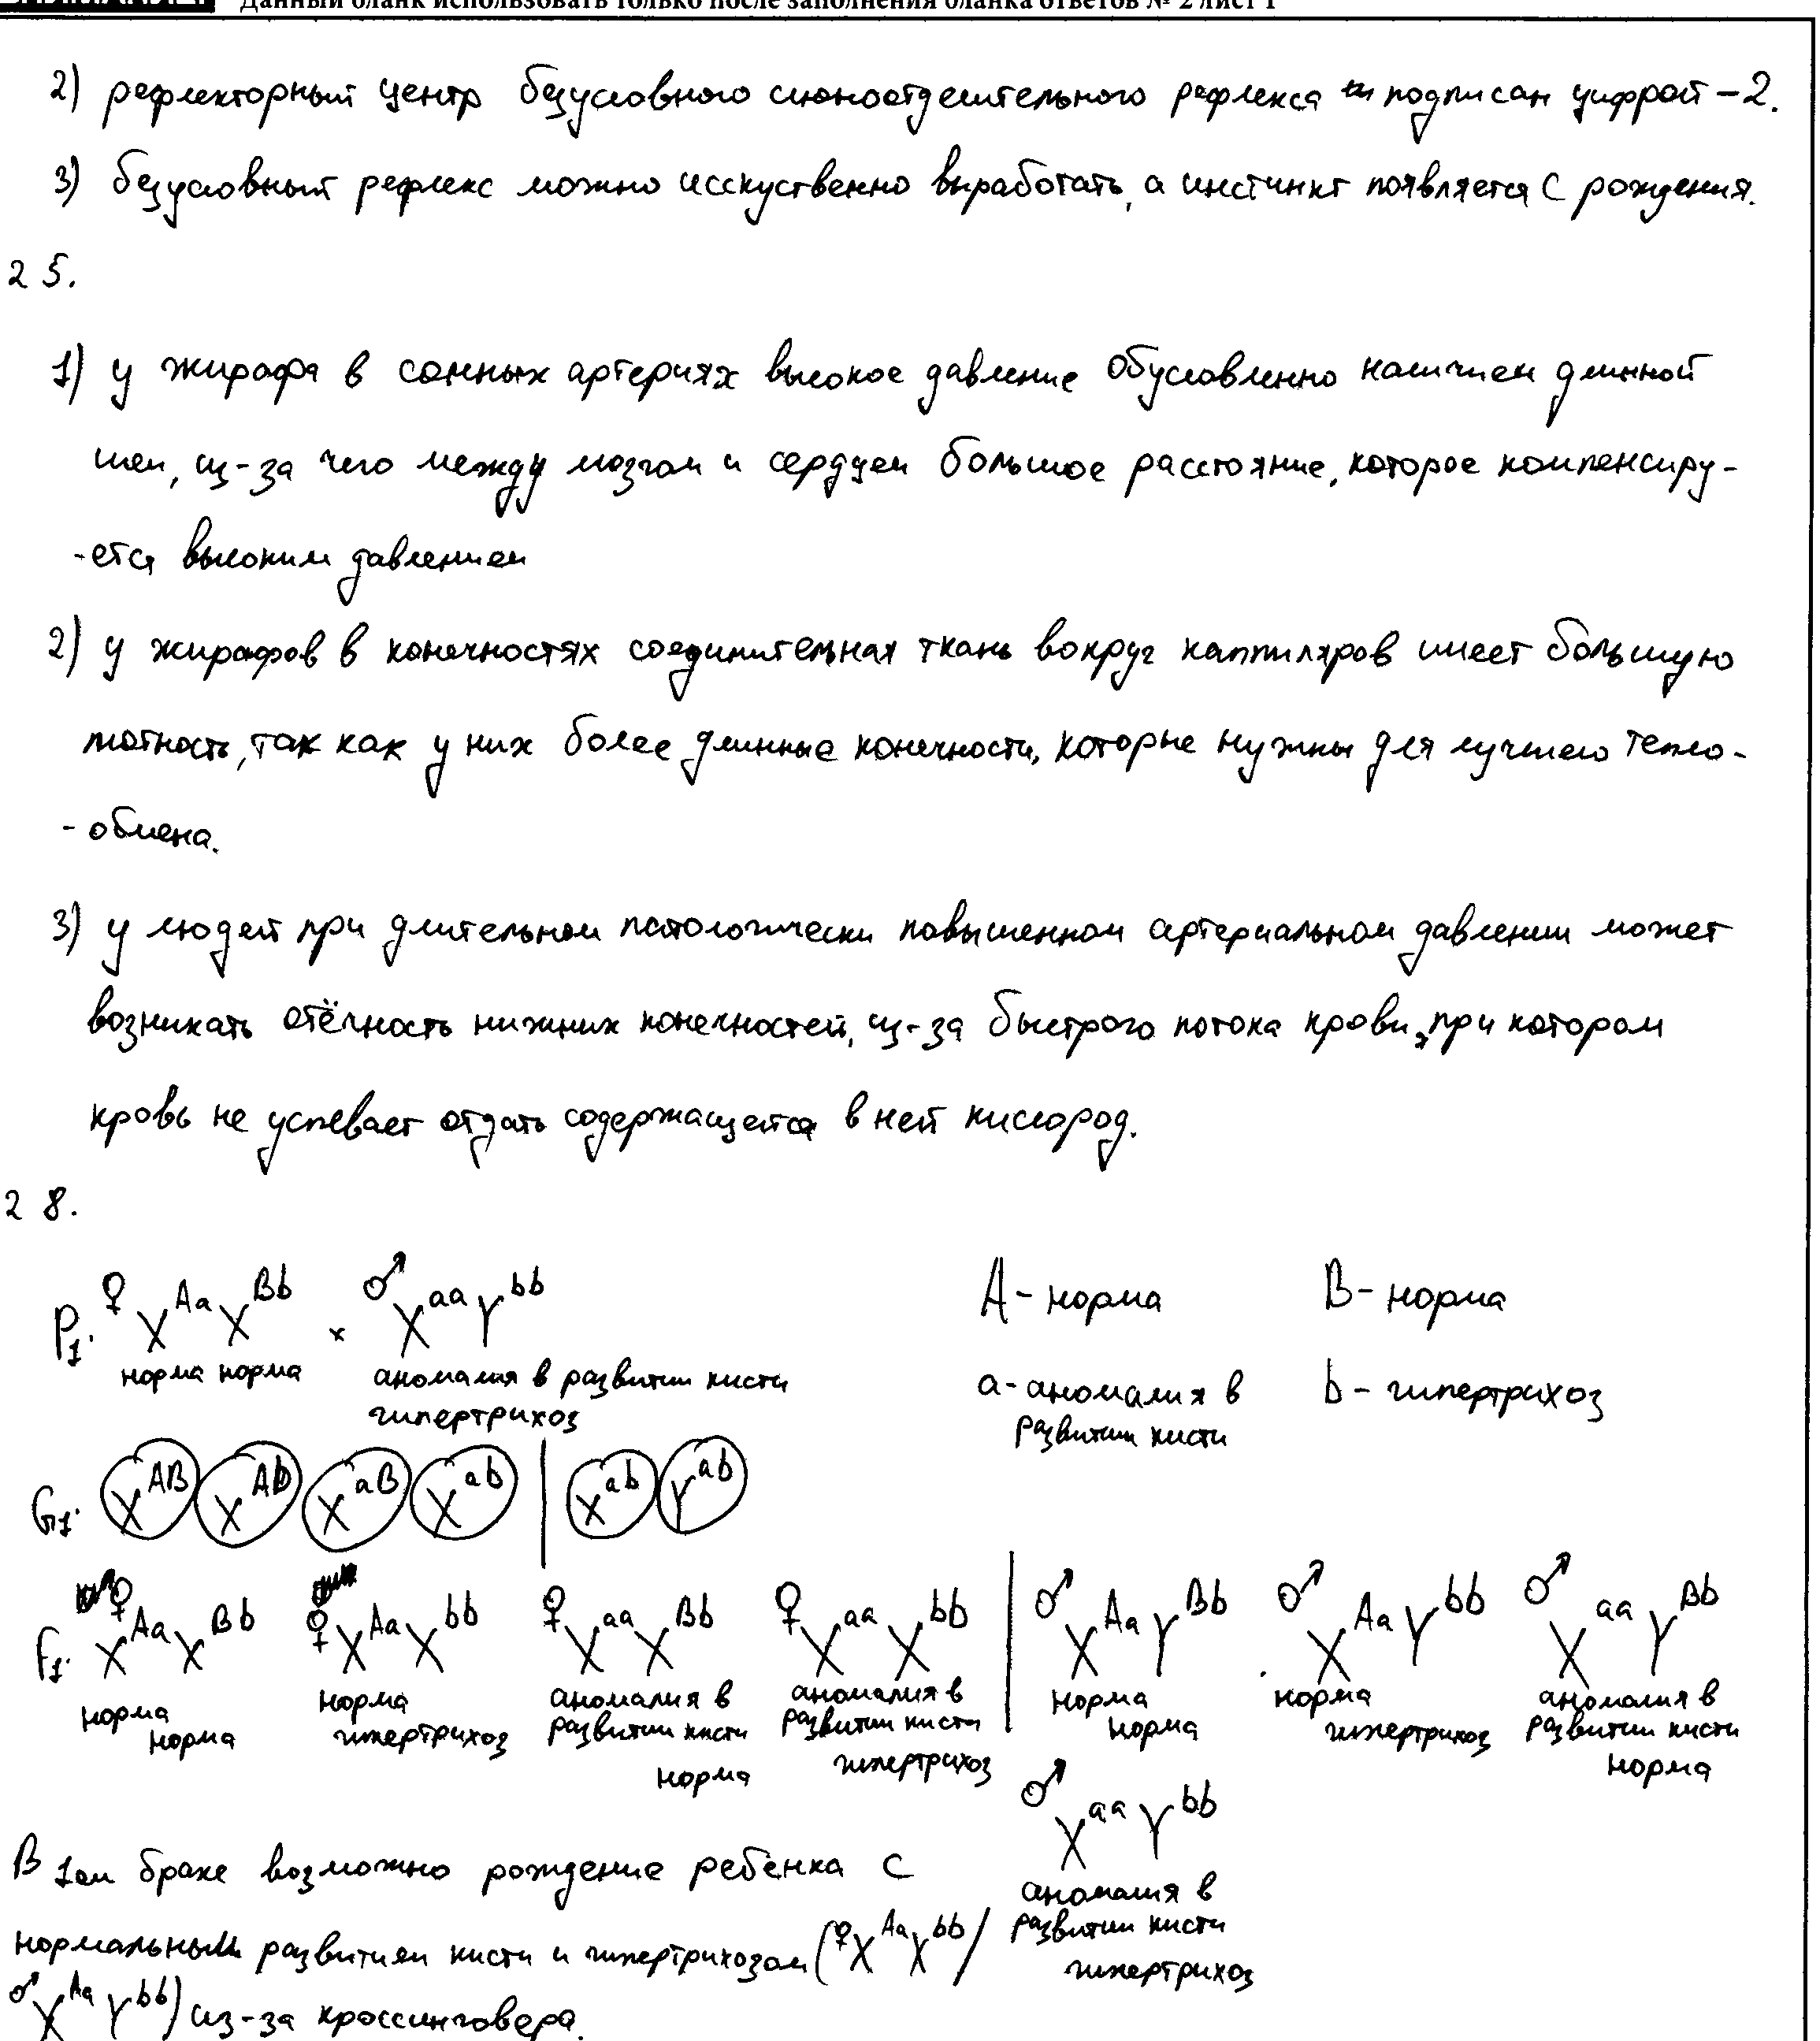 Данный бланк использовать только после заполнения бланка ответов № 2 лист 1
2) рефлекторный центр безусловного слюноотделительного рефлекса подписан цифрой – 2.
3) безусловный рефлекс можно исскуственно выработать, а инстинкт появляется с рождения.
25.
1) у жирафа в сонных артериях высокое давление обусловленно наличием длинной
шеи, из-за чего между мозгом и сердцем большое расстояние, которое компенсиру-
-ется высоким давлением
2) у жирафов в конечностях соединительная ткань вокруг каппиляров имеет большую
плотность, так как у них более длинные конечности, которые нужны для лучшего тепло-
- обмена.
3) у людей при длительном патологически повышенном артериальном давлении может
возникать отёчность нижних конечностей, из-за быстрого потока крови, при котором
кровь не успевает отдать содержащейся в ней кислород.
28.
P1: ♀ X^Aa X^Bb × ♂ X^aa Y^bb
A - норма B - норма
норма норма аномалия в развитии кисти
гипертрихоз
a - аномалия в развитии кисти b - гипертрихоз
G1: X^AB X^Ab X^aB X^ab | X^ab Y^ab
F1: ♀ X^Aa X^Bb ♀ X^Aa X^bb ♀ X^aa X^Bb ♀ X^aa X^bb | ♂ X^Aa Y^Bb ♂ X^Aa Y^bb ♂ X^aa Y^Bb
норма норма аномалия в аномалия в норма норма аномалия в
норма гипертрихоз развитии кисти развитии кисти норма гипертрихоз развитии кисти
норма гипертрихоз норма
♂ X^aa Y^bb
аномалия в
развитии кисти
гипертрихоз
В 1ом браке возможно рождение ребёнка с
нормальным развитием кисти и гипертрихозом (♀ X^Aa X^bb /
♂ X^Aa Y^bb) из-за кроссинговера.